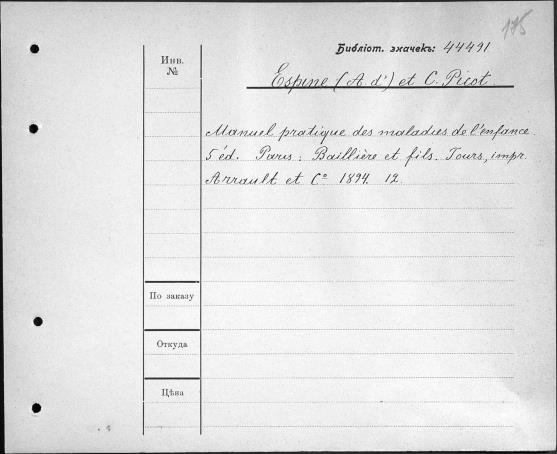 175
Библіот. значекъ: 44491
Инв.
№
Espine (A d') et C. Picot.
Manuel pratique des maladies de l'enfance.
5 éd. Paris: Baillière et fils. Tours, impr.
Arrault et Cº 1894. 12.
По заказу
Откуда
Цѣна